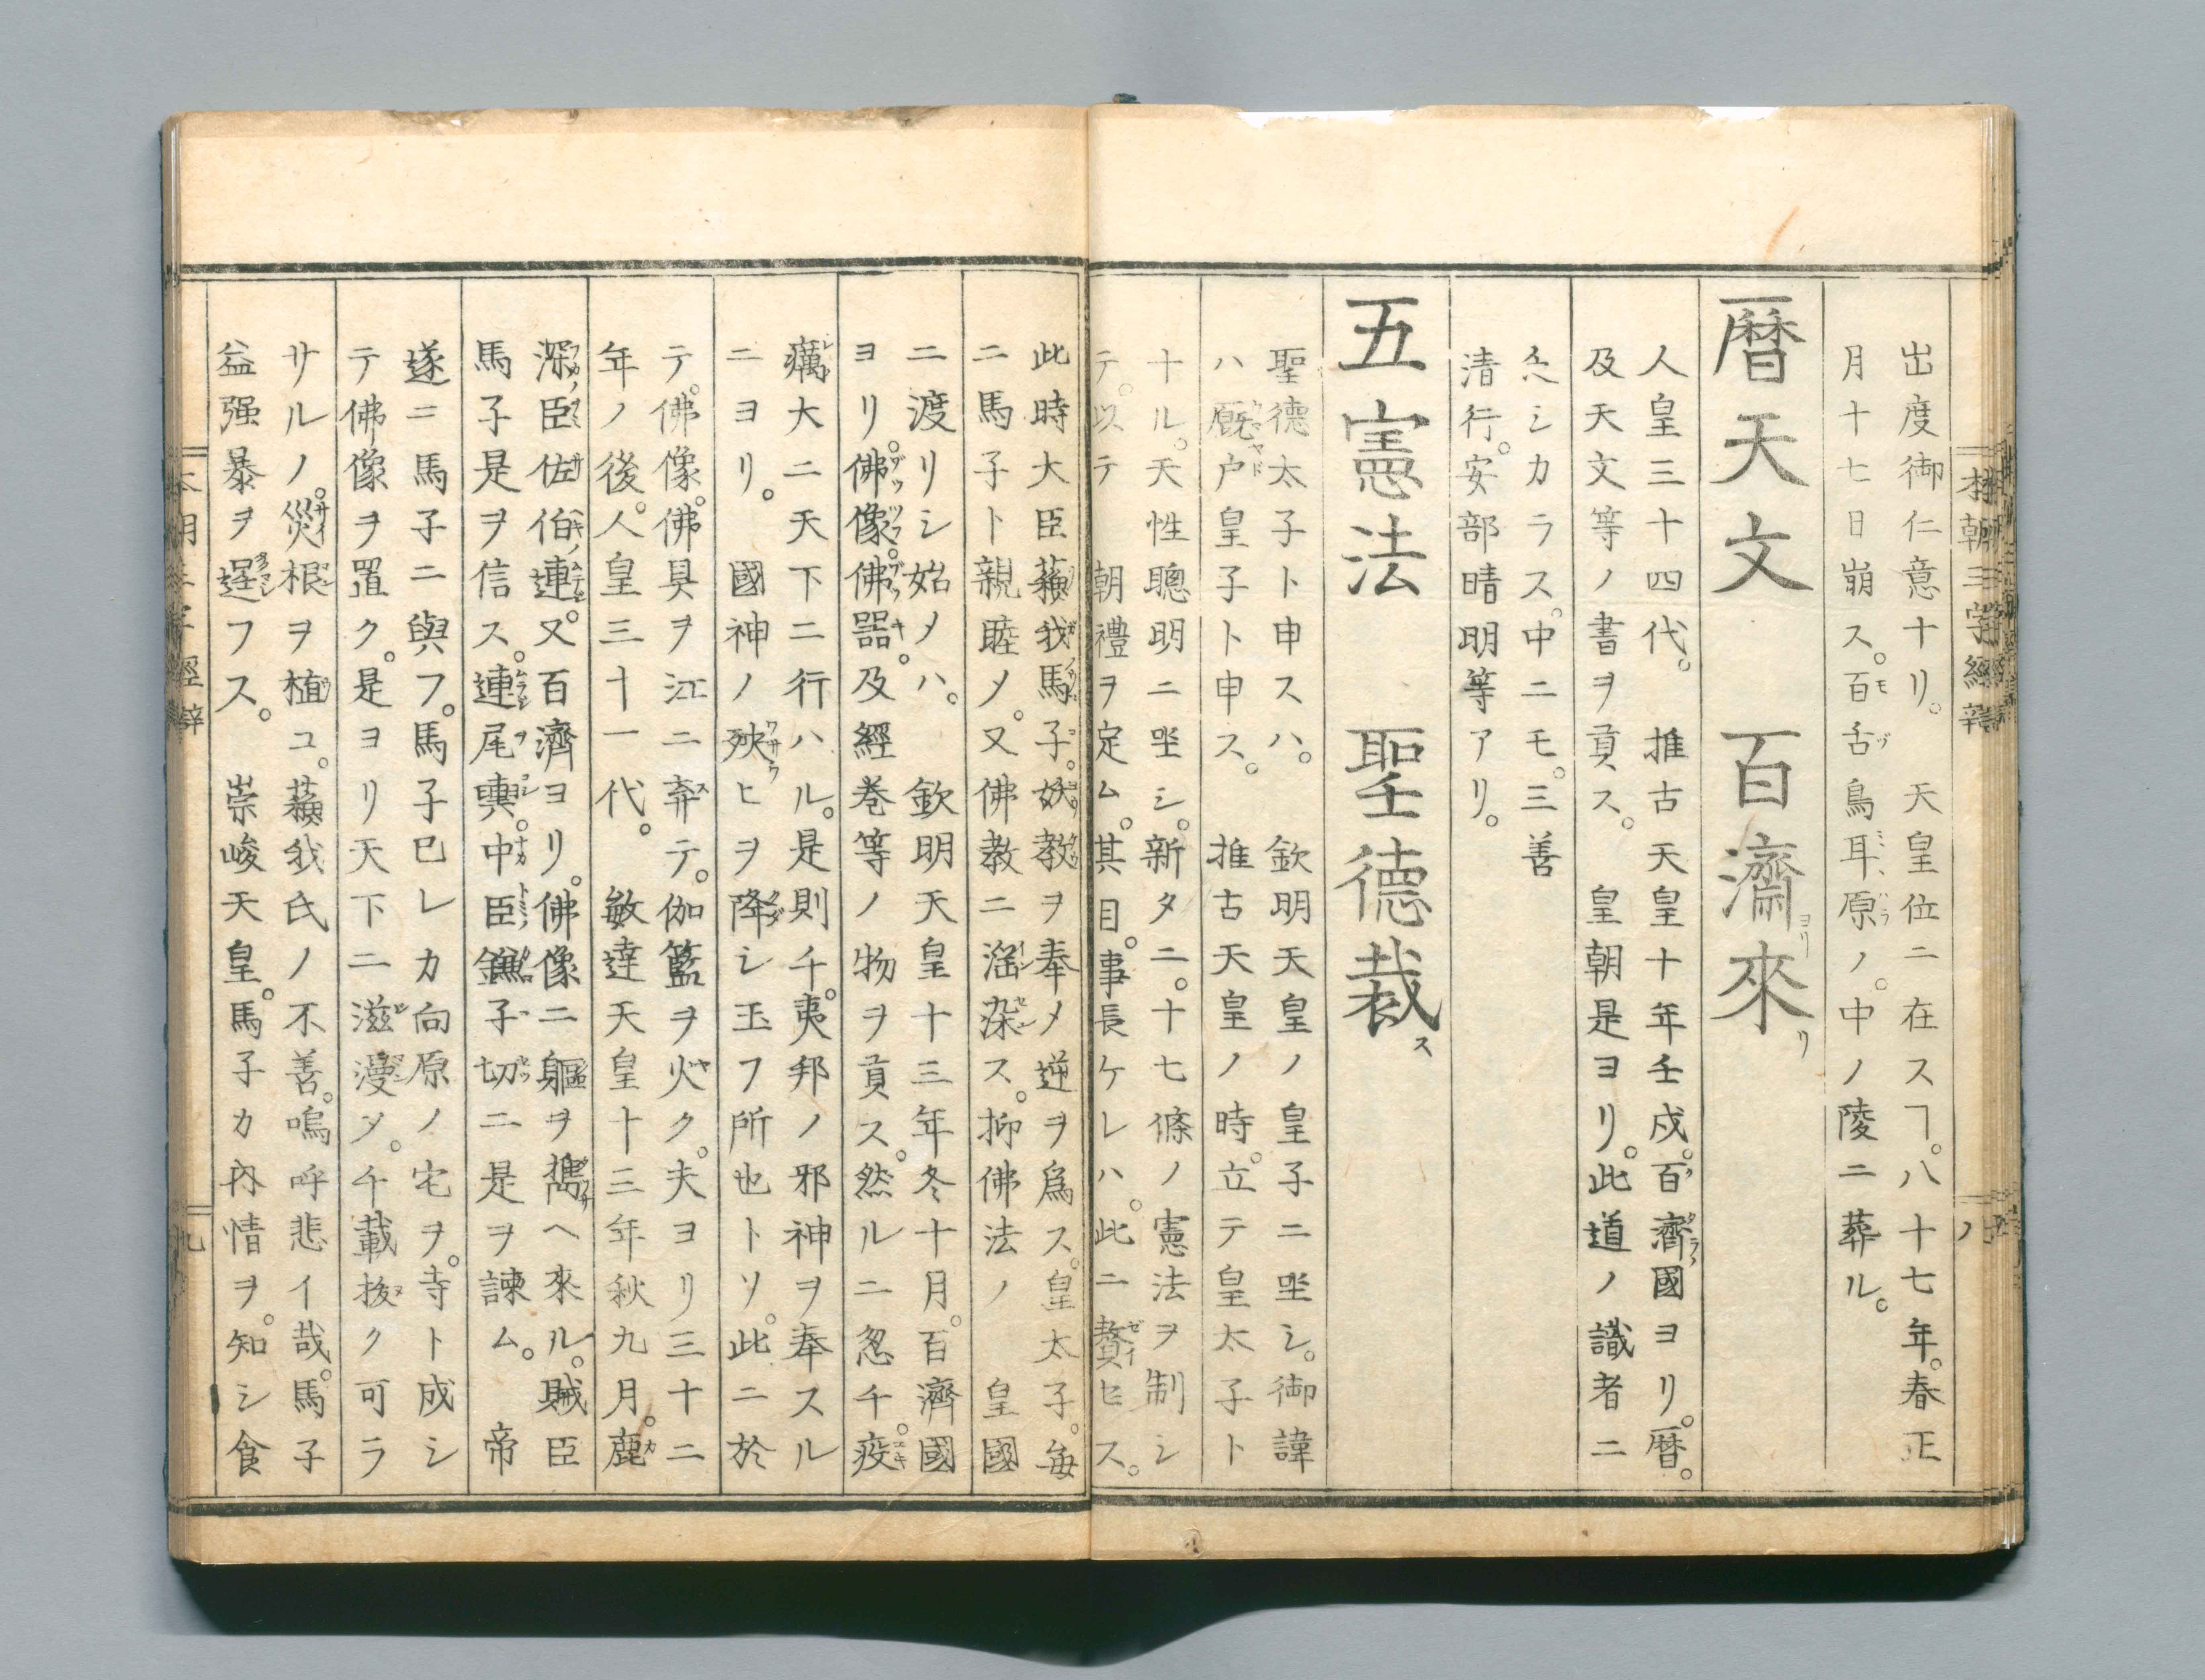 本朝三字經辤
出度御仁意十リ。　天皇位ニ在スヿ。八十七年。春正
月十七日崩ス。百舌鳥耳原ノ。中ノ陵ニ葬ル。
暦天文　百濟來リ
人皇三十四代。　推古天皇十年壬戌。百濟國ヨリ。暦。
及天文等ノ書ヲ貢ス。　皇朝是ヨリ。此道ノ識者ニ
乏シカラス。中ニモ。三善
清行。安部晴明等アリ。
五憲法　聖德裁ス
聖德太子ト申スハ。　欽明天皇ノ皇子ニ坐シ。御諱
ハ廐户皇子ト申ス。　推古天皇ノ時。立テ皇太子ト
十ル。天性聰明ニ坐シ。新タニ。十七條ノ憲法ヲ制シ
テ。以テ　朝禮ヲ定ム。其目。事長ケレハ。此ニ贅セス。
此時大臣蘓我馬子。妖教ヲ奉メ逆ヲ爲ス。皇太子。毎
ニ馬子ト親睦メ。又佛教ニ淫染ス。抑佛法ノ　皇國
ニ渡リシ始メハ。　欽明天皇十三年冬十月。百濟國
ヨリ。佛像。佛器。及經巻等ノ物ヲ貢ス。然ルニ忽チ。疫
癘大ニ天下ニ行ハル。是則チ。夷邦ノ邪神ヲ奉スル
ニヨリ。　國神ノ殃ヒヲ降シ玉フ所也トソ。此ニ於
テ。佛像。佛具ヲ江ニ棄テ。伽籃ヲ火ク。夫ヨリ三十二
年ノ後。人皇三十一代。　敏達天皇十三年秋九月。鹿
深臣佐伯連。又百濟ヨリ。佛像ニ軀ヲ擕ヘ來ル。賊臣
馬子是ヲ信ス。連尾輿。中臣鎌子切ニ是ヲ諫ム。　帝
遂ニ馬子ニ與フ。馬子巳レカ向原ノ宅ヲ。寺ト成シ
テ佛像ヲ置ク。是ヨリ天下ニ滋漫メ。千載拔ク可ラ
サルノ。災根ヲ植ユ。蘓我氏ノ不善。嗚呼悲イ哉。馬子
益强暴ヲ逞フス。　崇峻天皇。馬子カ內情ヲ。知シ食
本朝三字經辤　九